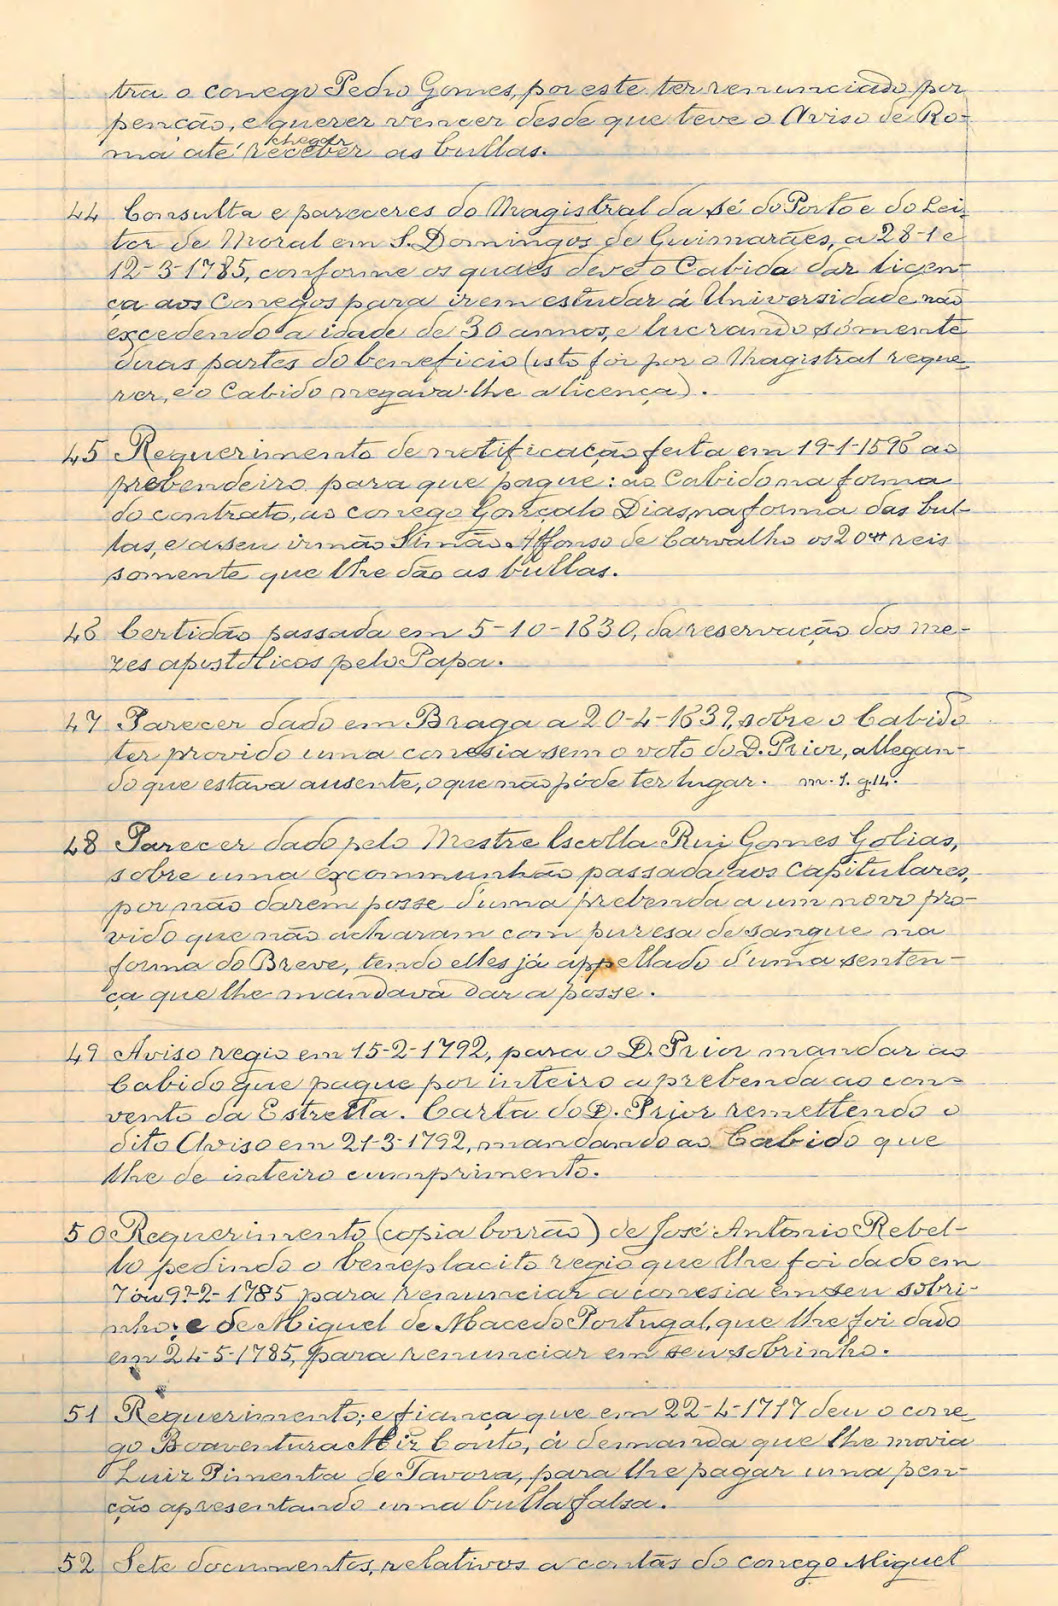 tra o conego Pedro Gomes, por este ter renunciado por
penção, e querer vencer desde que teve o Aviso de Ro-
ma até receber as bullas.
chegar
44 Consulta e pareceres do Magistral da Sé do Porto e do Lei-
tor de Moral em S. Domingos de Guimarães, a 28-1 e
12-3-1785, conforme os quaes deve o Cabido dar licen-
ça aos Conegos para irem estudar á Universidade não
excedendo a idade de 30 annos, e lucrando sómente
duas partes do beneficio (isto foi por o Magistral reque-
rer, e o Cabido negava-lhe a licença).
45 Requerimento de notificação feita em 19-1-1596 ao
prebendeiro para que pague: ao Cabido na forma
do contrato, ao conego Gonçalo Dias, na forma das bul-
las, e a seu irmão Simão Affonso de Carvalho os 20 reis
somente que lhe dão as bullas.
46 Certidão passada em 5-10-1630, da reservação dos me-
zes apostolicos pelo Papa.
47 Parecer dado em Braga a 20-4-1639, sobre o Cabido
ter provido uma conesia sem o voto do D. Prior, allegan-
do que estava ausente, o que não póde ter lugar.
48 Parecer dado pelo Mestre Escolla Rui Gomes Golias,
sobre uma excommunhão passada aos Capitulares,
por não darem posse d'uma prebenda a um novo pro-
vido que não acharam com puresa de sangue na
forma do Breve, tendo elles já appellado d'uma senten-
ça que lhe mandava dar a posse.
49 Aviso regio em 15-2-1792, para o D. Prior mandar ao
Cabido que pague por inteiro a prebenda ao con-
vento da Estrella. Carta do D. Prior remettendo o
dito Aviso em 21-3-1792, mandando ao Cabido que
lhe de inteiro cumprimento.
50 Requerimento (copia borrão) de José Antonio Rebel-
lo pedindo o beneplacito regio que lhe foi dado em
7 ou 9?-2-1785 para renunciar a conesia em seu sobri-
nho; e de Miguel de Macedo Portugal, que lhe foi dado
em 24-5-1785, para renunciar em seu sobrinho.
51 Requerimento; e fiança que em 22-4-1717 deu o cone-
go Boaventura Miz Couto, á demanda que lhe movia
Luiz Pimenta de Tavora, para lhe pagar uma pen-
ção apresentando uma bulla falsa.
52 Sete documentos, relativos a contas do conego Miguel